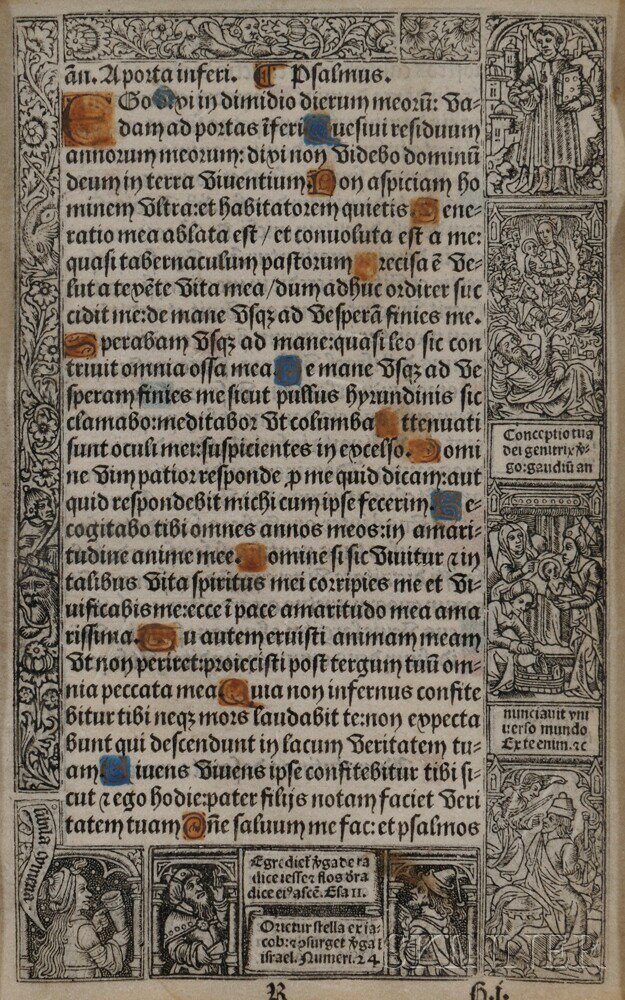 añ. A porta inferi. ¶ Psalmus.
EGo dixi in dimidio dierum meorū: Va-
dam ad portas īferi Quesiui residuum
annorum meorum: dixi non Videbo dominū
deum in terra Viuentium. Non aspiciam ho
minem Vltra: et habitatorem quietis Gene-
ratio mea ablata est / et conuoluta est a me:
quasi tabernaculum pastorum Precisa ē Ve-
lut a texēte Vita mea / dum adhuc ordirer suc
cidit me: de mane Vsqz ad Vesperā finies me.
Sperabam Vsqz ad mane: quasi leo sic con
triuit omnia ossa mea De mane Vsqz ad Ve
speram finies me sicut pullus hyrundinis sic
clamabo: meditabor Vt columba Attenuati
sunt oculi mei: suspicientes in excelso. Domi
ne Vim patior responde ꝓ me quid dicam: aut
quid respondebit michi cum ipse fecerim Re-
cogitabo tibi omnes annos meos: in amari-
tudine anime mee. Domine si sic Viuitur ⁊ in
talibus Vita spiritus mei corripies me et Vi-
uificabis me: ecce ī pace amaritudo mea ama
rissima. Tu autem eruisti animam meam
Vt non periret: proiecisti post tergum tuū om-
nia peccata mea Quia non infernus confite
bitur tibi neqz mors laudabit te: non expecta
bunt qui descendunt in lacum Veritatem tu-
am Viuens Viuens ipse confitebitur tibi si-
cut ⁊ ego hodie: pater filijs notam faciet Veri
tatem tuam Dñe saluum me fac: et psalmos
Conceptio tua
dei genitrix ꝟ-
go: gaudiū an
nunciauit vni
uerso mundo
Ex te enim. ⁊c
Egrediet̄ ꝟga de ra
dice iesse ⁊ flos d' ra
dice eiꝰ ascē. Esa 11.
Orietur stella ex ia-
cob: ⁊ ɔsurget ꝟga ī
israel. Numeri. 24
h.i.
SKINNER